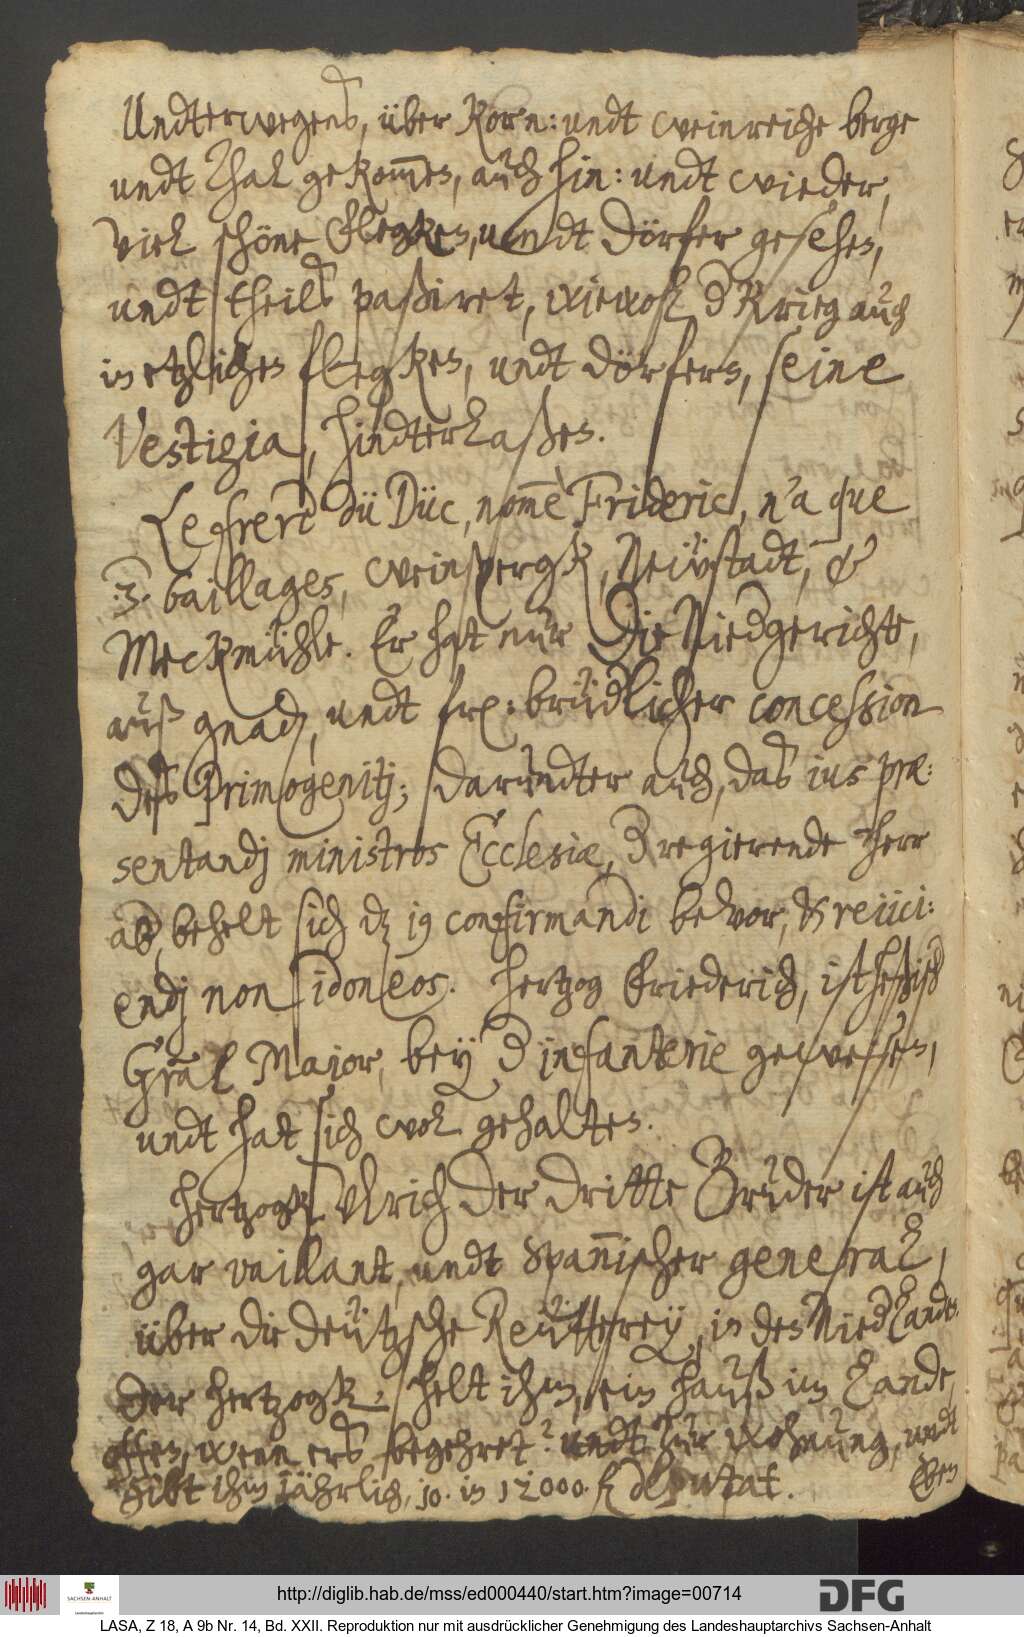 Undterwegens, über Korn: undt weinreiche berge
undt Thal gekom̅en, auch hin: undt wieder,
viel schöne Flegken, undt dörfer gesehen,
undt theils paßiret, wiewol d Krieg auch
in etzlichen flegken, undt dörfern, seine
Vestigia, hindterlaßen.
Le frere du Düc, nom̅è Frideric, n'a que
.3. baillages, weinßbergk, Neüstadt, &
Meckmühle. Er hat nur die Niedgerichte,
auß gnad, undt frl: brüdlicher concession
des Primogenitj; darundter auch, das ius præ:
sentandj ministros Ecclesiæ, d regierende herr
ab, behelt sich dz ius confirmandi bevor, & reiici:
endj non idoneos. Hertzog Friederich, ist heßisch
Gral Major, bey d infanterie gewesen,
undt hat sich wol gehalten.
Hertzogk Ulrich der dritte Bruder ist auch
gar vaillant, undt Span̅ischer general,
über die deützsche Reütterey, in den Niedlanden.
der hertzogk, helt ihm, ein hauß im Lande,
offen, wenn ers begehret? undt zur wohnung, undt
gibt ihm Jährlich, 10. in 12000. fl deputat.
Eben
http://diglib.hab.de/mss/ed000440/start.htm?image=00714
SACHSEN-ANHALT
DFG
LASA, Z 18, A 9b Nr. 14, Bd. XXII. Reproduktion nur mit ausdrücklicher Genehmigung des Landeshauptarchivs Sachsen-Anhalt